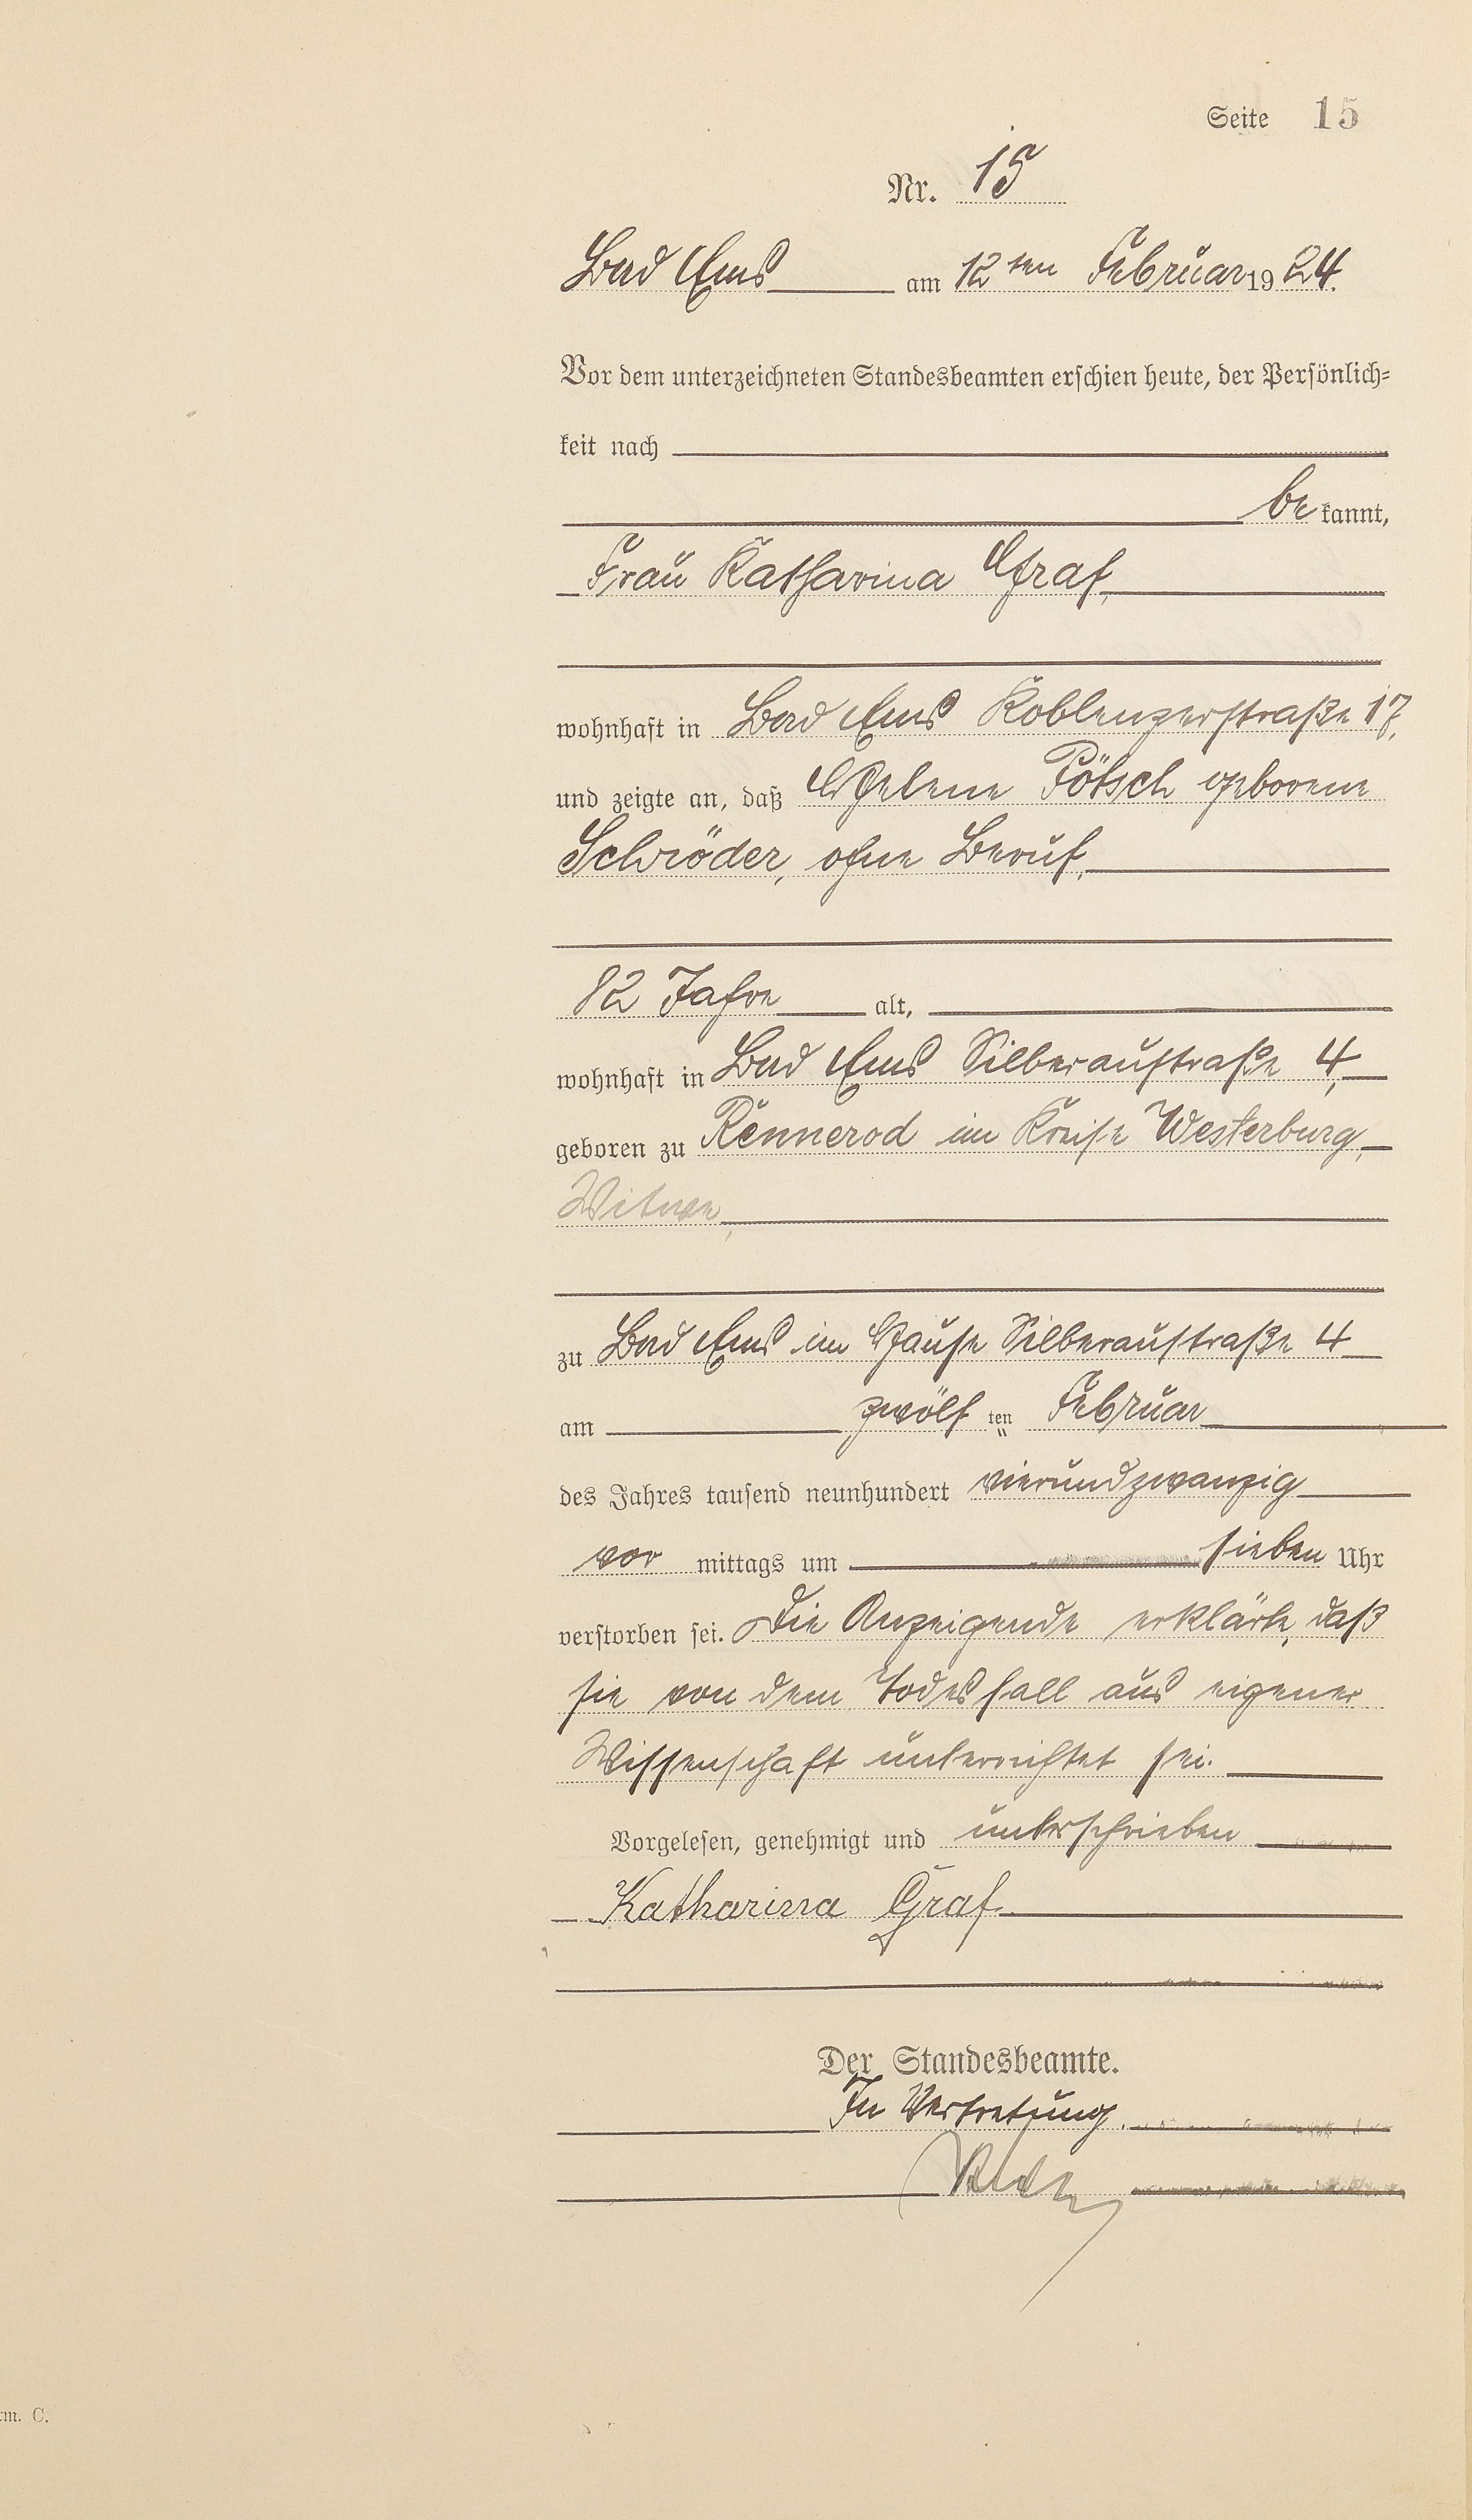 Seite 15
Nr. 15
Bad Ems am 12ten Februar 1924.
Vor dem unterzeichneten Standesbeamten erschien heute, der Persönlich-
keit nach
bekannt,
Frau Katharina Graf,
wohnhaft in Bad Ems Koblenzerstraße 17,
und zeigte an, daß Helene Pötsch geborene
Schröder, ohne Beruf,
82 Jahre alt,
wohnhaft in Bad Ems Silberaustraße 4,
geboren zu Rennerod im Kreise Westerburg,
Witwe,
zu Bad Ems im Hause Silberaustraße 4
am zwölf ten Februar
des Jahres tausend neunhundert vierundzwanzig
vor mittags um sieben Uhr
verstorben sei. Die Anzeigende erklärte, daß
sie von dem Todesfall aus eigener
Wissenschaft unterrichtet sei.
Vorgelesen, genehmigt und unterschrieben
Katharina Graf.
Der Standesbeamte.
In Vertretung.
rm. C.